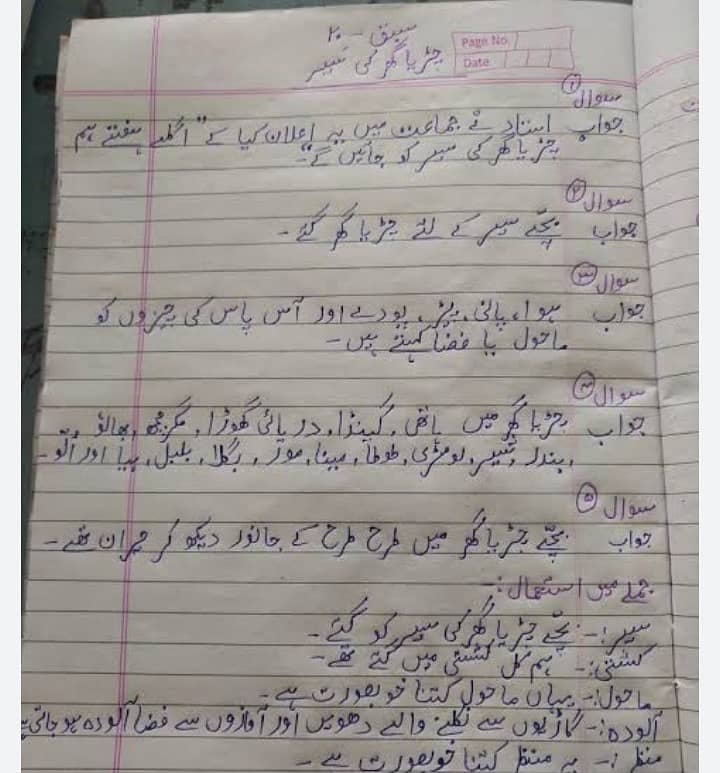 سبق - ۲۰
Page No.
چڑیا گھر کی سیر
Date
سوال ①
جواب استاد نے جماعت میں یہ اعلان کیا کے "اگلے ہفتے ہم
چڑیا گھر کی سیر کو جائیں گے"-
سوال ②
جواب بچّے سیر کے لئے چڑیا گھر گئے -
سوال ③
جواب ہوا، پانی، پیڑ، پودے اور آس پاس کی چیزوں کو
ماحول یا فضا کہتے ہیں -
سوال ④
جواب چڑیا گھر میں ہاتھی، گینڈا، دریائی گھوڑا، مگرمچھ، بھالو
، بندر، شیر، لومڑی، طوطا، مینا، مور، بگلا، بلبل، بیا اور اُلّو -
سوال ⑤
جواب بچّے چڑیا گھر میں طرح طرح کے جانور دیکھ کر حیران تھے -
جملے میں استعمال :-
سیر :- بچّے چڑیا گھر کی سیر کو گئے -
کشتی :- ہم کل کشتی میں گئے تھے -
ماحول :- یہاں ماحول کتنا خوبصورت ہے -
آلودہ :- گاڑیوں سے نکلنے والے دھویں اور آوازوں سے فضا آلودہ ہو جاتی ہے
منظر :- یہ منظر کتنا خوبصورت ہے -